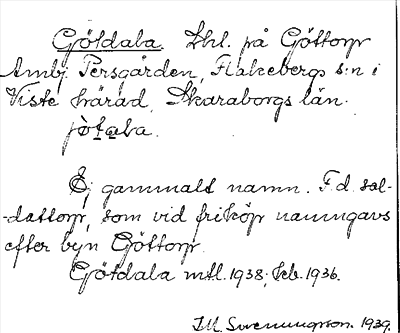 Götdala. Lhl. på Göttorp
Ambj. Persgården, Flakebergs s:n i
Viste härad, Skaraborgs län.
jö̀t̠a̠la.
Ej gammalt namn. F.d. sol-
-dattorp, som vid friköp namngavs
efter byn Göttorp.
Götdala mtl. 1938; Keb. 1936.
I.M. Svenungson. 1939.